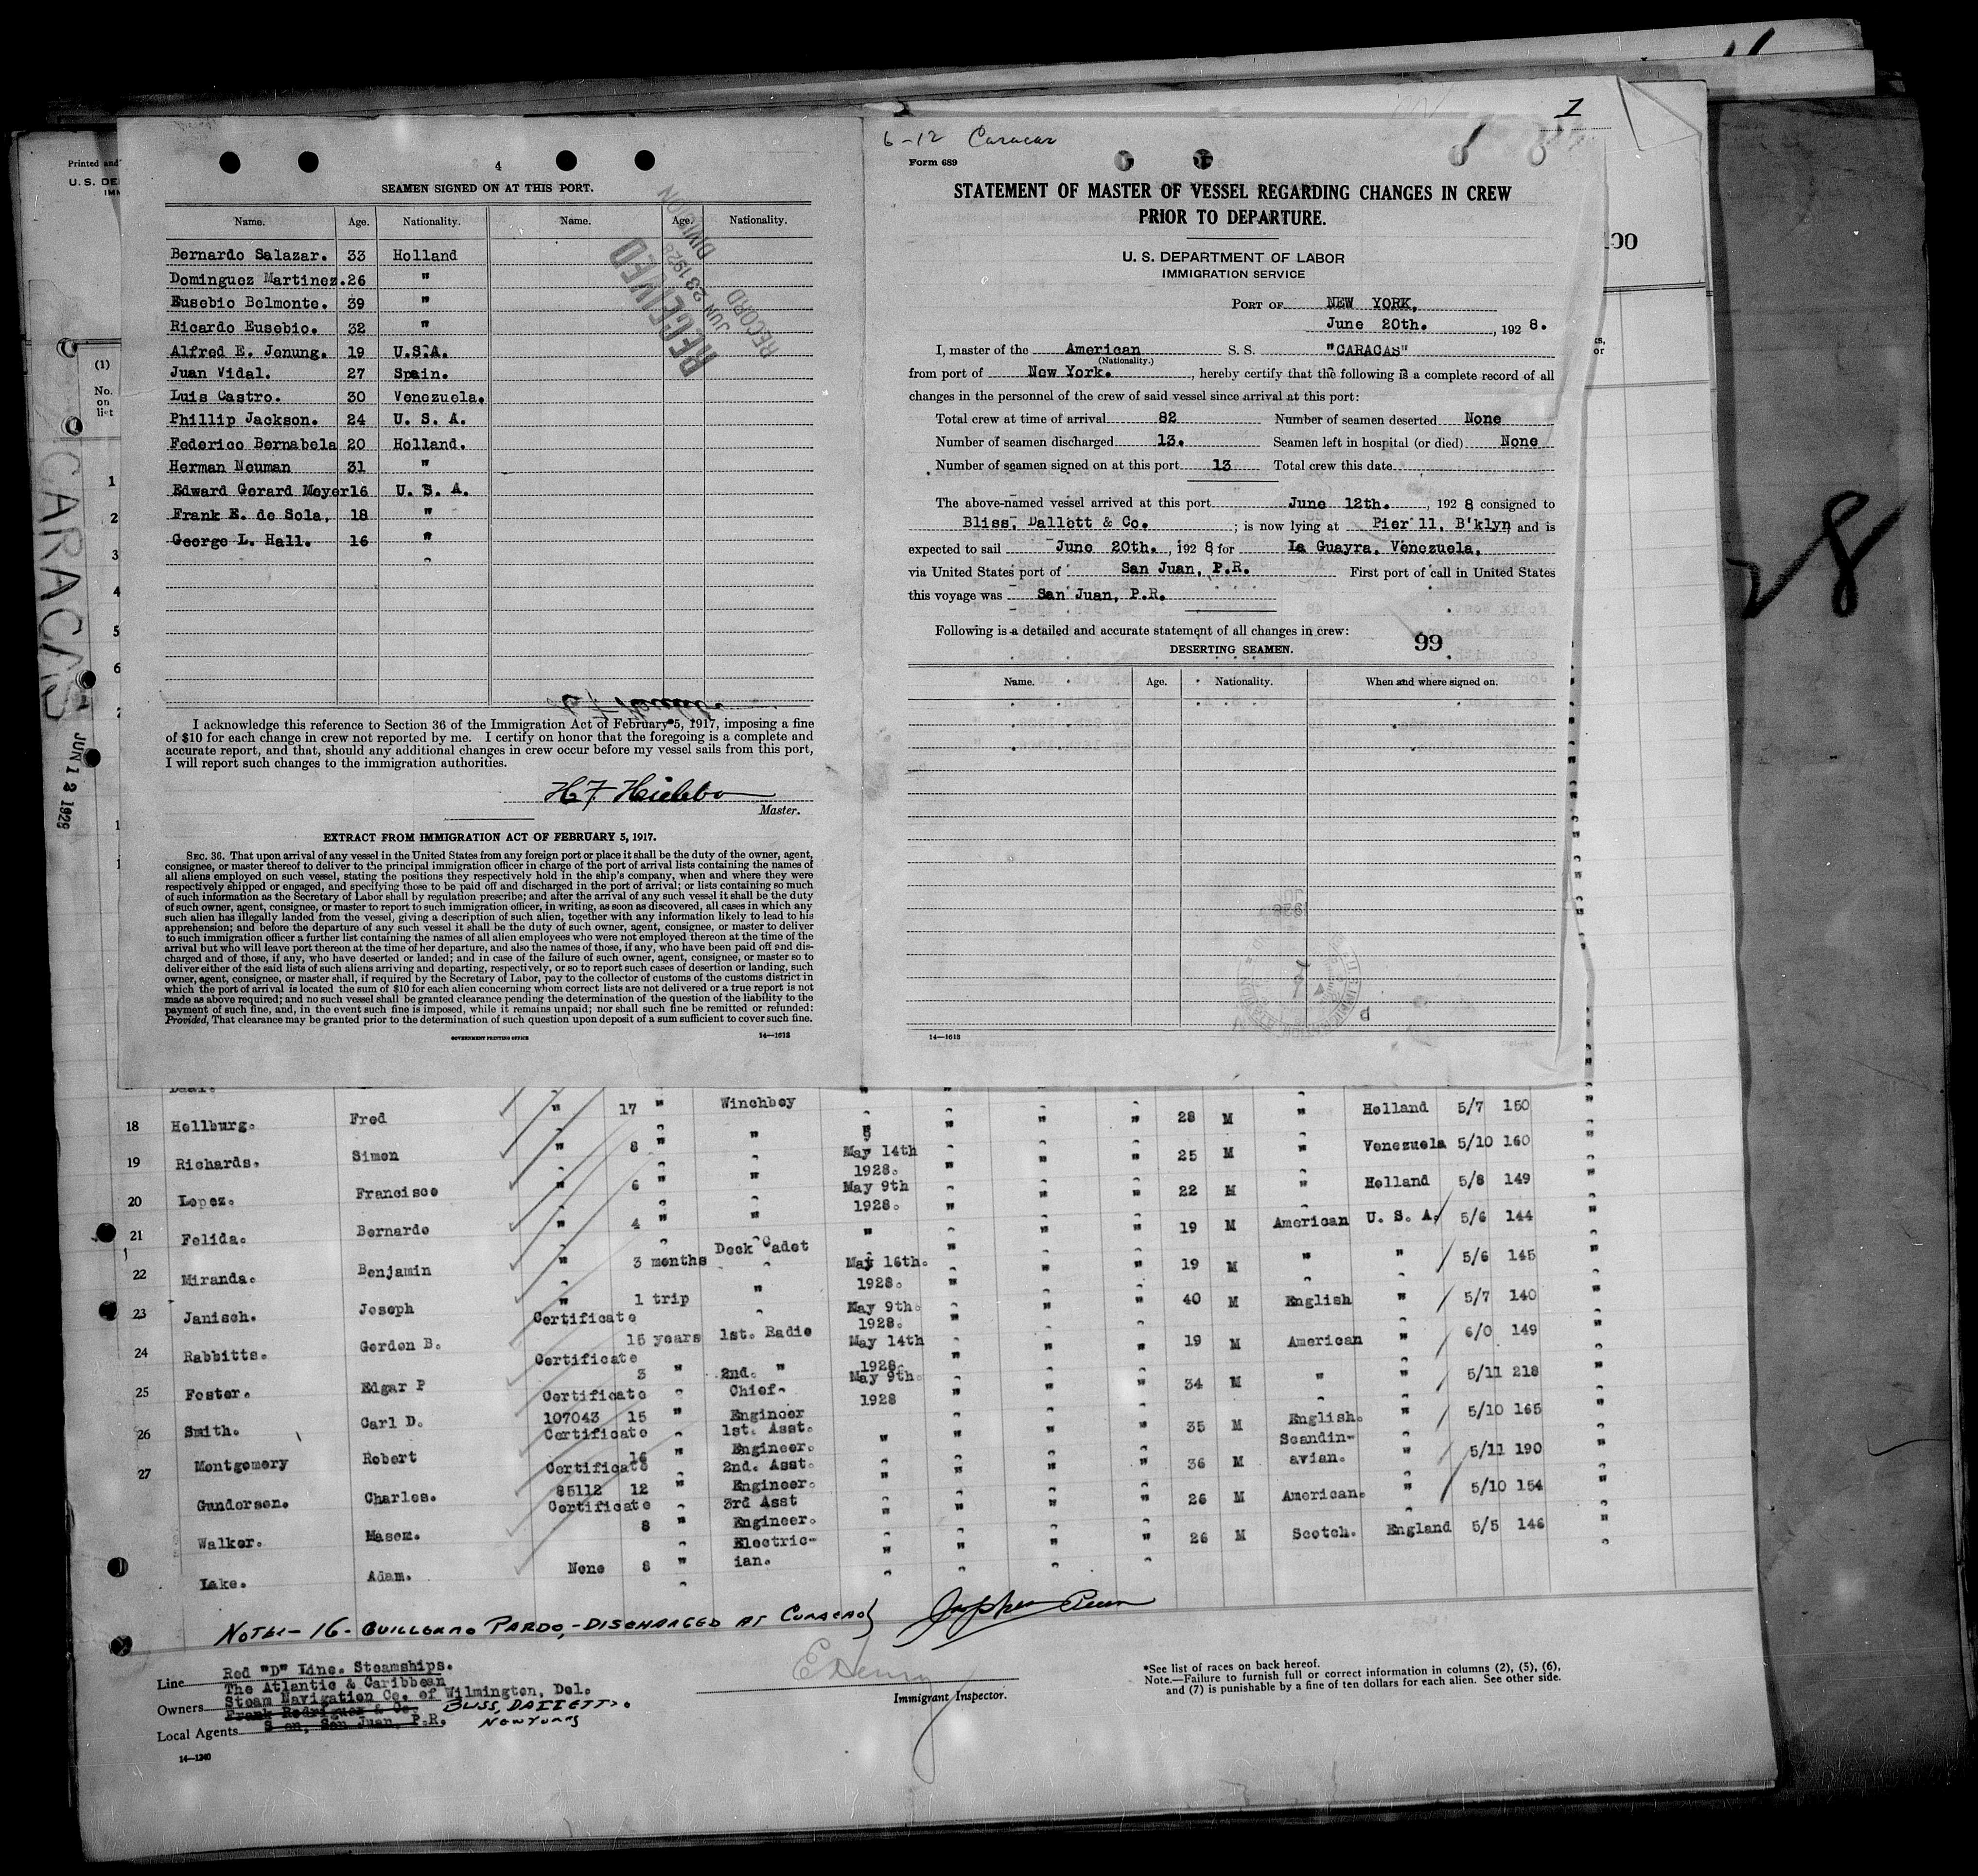 4
SEAMEN SIGNED ON AT THIS PORT.
Name. Age. Nationality. Name. Age. Nationality.
Bernardo Salazar. 33 Holland
Dominguez Martinez. 26 "
Eusebio Belmonte. 39 "
Ricardo Eusebio. 32 "
Alfred E. Jenung. 19 U.S.A.
Juan Vidal. 27 Spain.
Luis Castro. 30 Venezuela.
Phillip Jackson. 24 U. S. A.
Federico Bernabela 20 Holland.
Herman Neuman 31 "
Edward Gerard Meyer 16 U. S. A.
Frank E. de Sola, 18 "
George L. Hall. 16 "
RECEIVED
JUN 23 1928
RECORD DIVISION
I acknowledge this reference to Section 36 of the Immigration Act of February 5, 1917, imposing a fine
of $10 for each change in crew not reported by me. I certify on honor that the foregoing is a complete and
accurate report, and that, should any additional changes in crew occur before my vessel sails from this port,
I will report such changes to the immigration authorities.
Master.
EXTRACT FROM IMMIGRATION ACT OF FEBRUARY 5, 1917.
SEC. 36. That upon arrival of any vessel in the United States from any foreign port or place it shall be the duty of the owner, agent,
consignee, or master thereof to deliver to the principal immigration officer in charge of the port of arrival lists containing the names of
all aliens employed on such vessel, stating the positions they respectively hold in the ship's company, when and where they were
respectively shipped or engaged, and specifying those to be paid off and discharged in the port of arrival; or lists containing so much
of such information as the Secretary of Labor shall by regulation prescribe; and after the arrival of any such vessel it shall be the duty
of such owner, agent, consignee, or master to report to such immigration officer, in writing, as soon as discovered, all cases in which any
such alien has illegally landed from the vessel, giving a description of such alien, together with any information likely to lead to his
apprehension; and before the departure of any such vessel it shall be the duty of such owner, agent, consignee, or master to deliver
to such immigration officer a further list containing the names of all alien employees who were not employed thereon at the time of the
arrival but who will leave port thereon at the time of her departure, and also the names of those, if any, who have been paid off and dis-
charged and of those, if any, who have deserted or landed; and in case of the failure of such owner, agent, consignee, or master so to
deliver either of the said lists of such aliens arriving and departing, respectively, or so to report such cases of desertion or landing, such
owner, agent, consignee, or master shall, if required by the Secretary of Labor, pay to the collector of customs of the customs district in
which the port of arrival is located the sum of $10 for each alien concerning whom correct lists are not delivered or a true report is not
made as above required; and no such vessel shall be granted clearance pending the determination of the question of the liability to the
payment of such fine, and, in the event such fine is imposed, while it remains unpaid; nor shall such fine be remitted or refunded:
Provided, That clearance may be granted prior to the determination of such question upon deposit of a sum sufficient to cover such fine.
GOVERNMENT PRINTING OFFICE 14—1613
6-12 Caracas
1
Form 689
STATEMENT OF MASTER OF VESSEL REGARDING CHANGES IN CREW
PRIOR TO DEPARTURE.
U. S. DEPARTMENT OF LABOR
IMMIGRATION SERVICE
PORT OF NEW YORK,
June 20th. , 192 8.
I, master of the American S. S. "CARACAS"
(Nationality.)
from port of New York. , hereby certify that the following is a complete record of all
changes in the personnel of the crew of said vessel since arrival at this port:
Total crew at time of arrival 82 Number of seamen deserted None
Number of seamen discharged 13. Seamen left in hospital (or died) None
Number of seamen signed on at this port 13 Total crew this date
The above-named vessel arrived at this port June 12th. , 192 8 consigned to
Bliss, Dallett & Co. ; is now lying at Pier 11, B'klyn and is
expected to sail June 20th. , 192 8, for La Guayra, Venezuela.
via United States port of San Juan, P.R. First port of call in United States
this voyage was San Juan, P.R.
Following is a detailed and accurate statement of all changes in crew:
99
DESERTING SEAMEN.
Name. Age. Nationality. When and where signed on.
14—1613
Printed and
U. S. DE
(1)
No. on list
CARACAS
JUN 12 1928
1
2
3
4
5
6
28
18 Hellburg. Fred " 17 " Winchboy " " " " 28 M " Holland 5/7 150 "
19 Richards. Simon " 8 " " May 14th 1928. " " " 25 M " Venezuela 5/10 160 "
20 Lopez. Francisco " 6 " " May 9th 1928. " " " 22 M " Holland 5/8 149 "
21 Felida. Bernardo " 4 " " " " " " 19 M American U. S. A. 5/6 144 "
22 Miranda. Benjamin " 3 months Deck Cadet May 16th. 1928. " " " 19 M " " 5/6 145 "
23 Janisch. Joseph " 1 trip " May 9th. 1928. " " " 40 M English " 5/7 140 "
24 Rabbitts. Gordon B. Certificate 15 years 1st. Radio May 14th 1928. " " " 19 M American " 6/0 149 "
25 Foster. Edgar P Certificate 3 " 2nd. " May 9th. 1928 " " " 34 M " " 5/11 218 "
26 Smith. Carl D. Certificate 107043 15 " Chief Engineer " " " " 35 M English. " 5/10 165 "
27 Montgomery Robert Certificate 16 " 1st. Asst. Engineer. " " " " 36 M Scandin-avian. " 5/11 190 "
Gundersen. Charles. Certificate 85112 12 " 2nd. Asst. Engineer. " " " " 26 M American. " 5/10 154 "
Walker. Mason. Certificate 8 " 3rd Asst Engineer. " " " " 26 M Scotch. England 5/5 146 "
Lake. Adam. None 8 " Electric-ian. " " " "
NOTE:- 16 - GUILLERMO PARDO, - DISCHARGED AT CURACAO
Line Red "D" Line. Steamships.
Owners The Atlantic & Caribbean
Steam Navigation Co. of Wilmington, Del.
Local Agents Frank Rodriguez & Co.
San Juan, P.R. BLISS, DALLETT
NEW YORK
14—1240
Immigrant Inspector.
*See list of races on back hereof.
Note.—Failure to furnish full or correct information in columns (2), (5), (6),
and (7) is punishable by a fine of ten dollars for each alien. See other side.